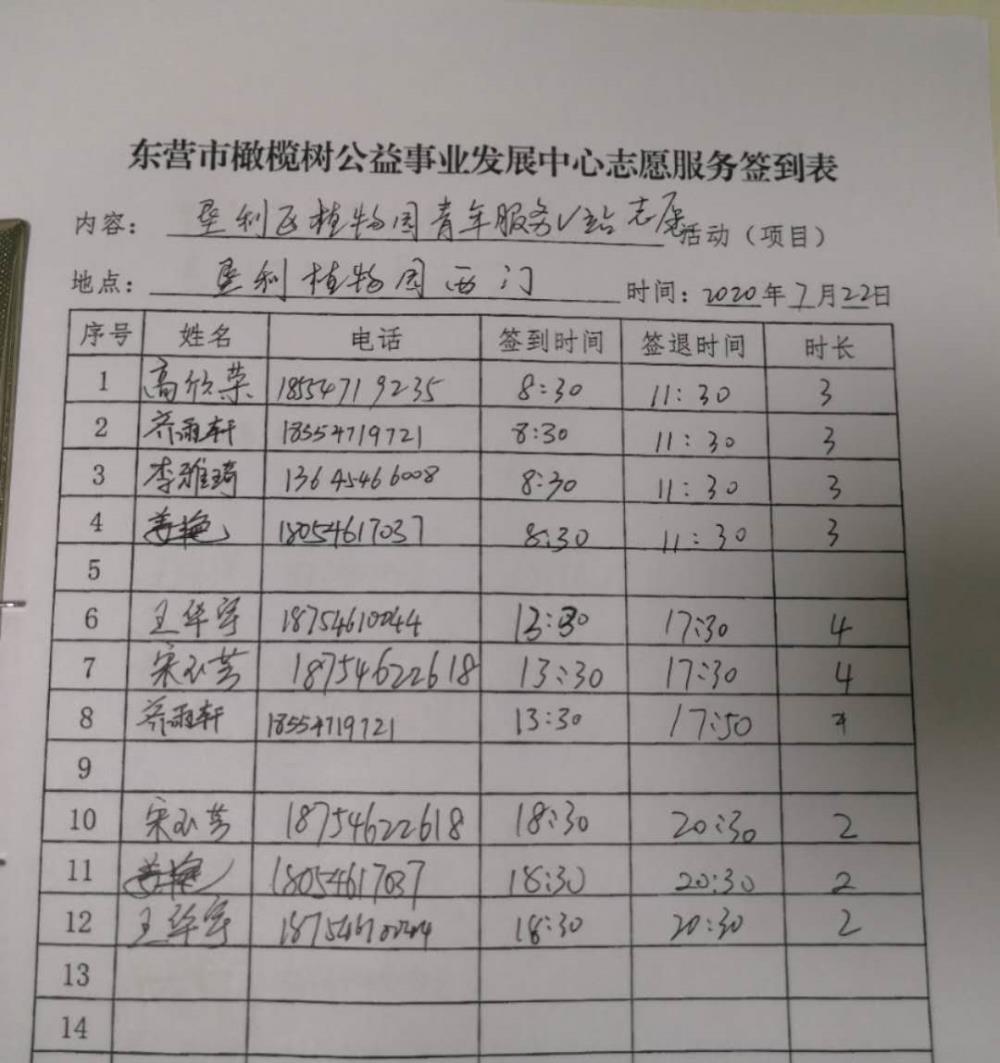 东营市橄榄树公益事业发展中心志愿服务签到表
内容: 垦利区植物园青年服务V站志愿活动（项目）
地点: 垦利植物园西门 时间: 2020年7月22日
序号 姓名 电话 签到时间 签退时间 时长
1 高欣荣 18554719235 8:30 11:30 3
2 齐雨轩 18554719721 8:30 11:30 3
3 李雅琦 13645466008 8:30 11:30 3
4 姜艳 18054617037 8:30 11:30 3
5
6 王华宇 18754610044 13:30 17:30 4
7 宋玉芳 18754622618 13:30 17:30 4
8 齐雨轩 18554719721 13:30 17:50 4
9
10 宋玉芳 18754622618 18:30 20:30 2
11 姜艳 18054617037 18:30 20:30 2
12 王华宇 18754610044 18:30 20:30 2
13
14